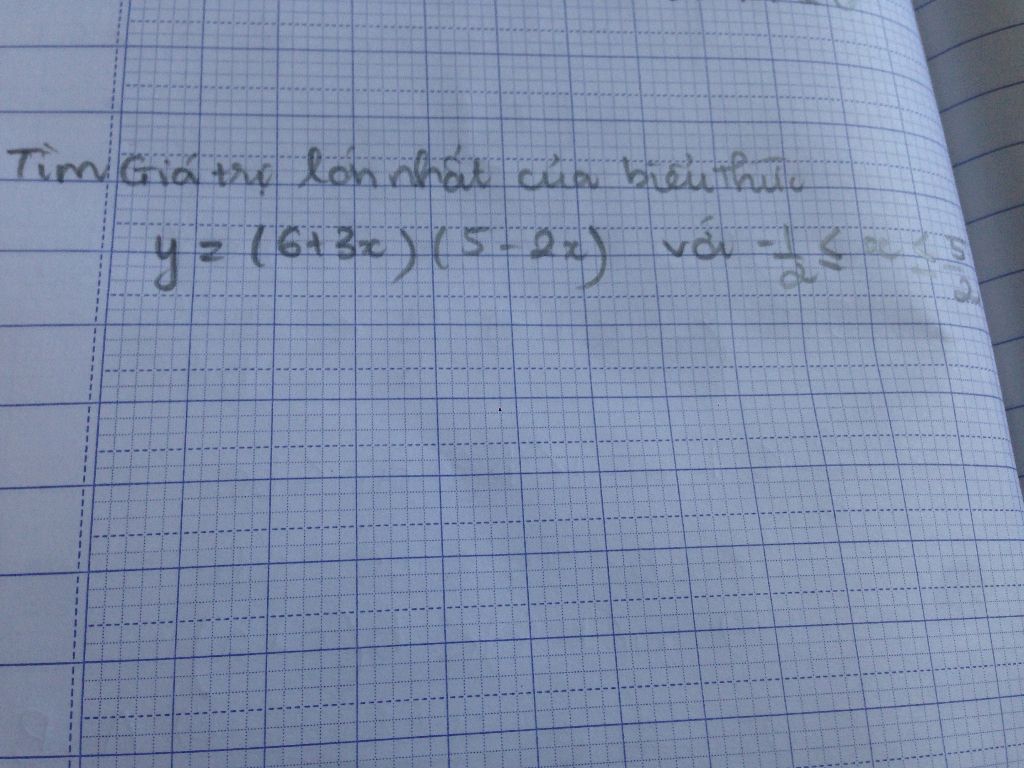 Tìm Giá trị lớn nhất của biểu thức
y = (6+3x)(5-2x) với -1/2 ≤ x ≤ 5/2